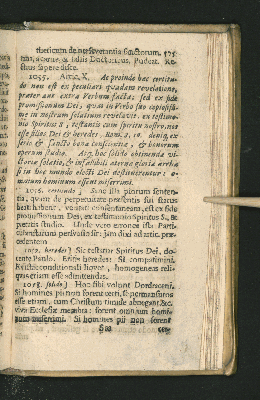 theticum de perseverantia sanctorum. 575
nus, acutus, & falsus Doctor eius, Pudeat. Re-
ctius sapere disce.
1055. Artic. X. Ac proinde hæc certitu-
do non est ex peculiari quadam revelatione,
præter aut extra Verbum facta: sed ex fide
promissionum Dei, quas in Verbo suo copiosissi-
me in nostrum solatium revelavit. ex testimo-
nio Spiritus S, testantis cum spiritu nostro, nos
esse filios Dei & heredes. Rom. 8, 16. deniq, ex
serio & sancto bonæ conscientiæ, & bonorum
operum studio. Atq, hoc solido obtinendæ vi-
ctoriæ solatio, & infallibili æternæ gloriæ arrha
si in hoc mundo electi Dei destituerentur: o-
mnium hominum essent miserrimi.
1056. Sic ista piorum senten-
tia, quam de perpetuitate præsentis sui status
beati habent, veritati consentaneam, est ex fide
promissionum Dei, ex testimonio Spiritus S., &
pietatis studio. Unde vero erronee ista Parti-
cularistarum persuasio sit: jam dixi ad artic. præ-
cedentem
1057. heredes] Sic testatur Spiritus Dei, do-
cente Paulo. Eritis heredes: Si compatimini.
Existit conditionali
igitur etiam esse admittendas.
1058. solido] Hoc sibi volunt Dordraceni.
Si homines pii non forent certi, se permansuros
esse etiam, cum Christum timide abnegant, &c.
viva Ecclesiæ membra: forent omnium homi-
num miserrimi. Si homines pii non forent